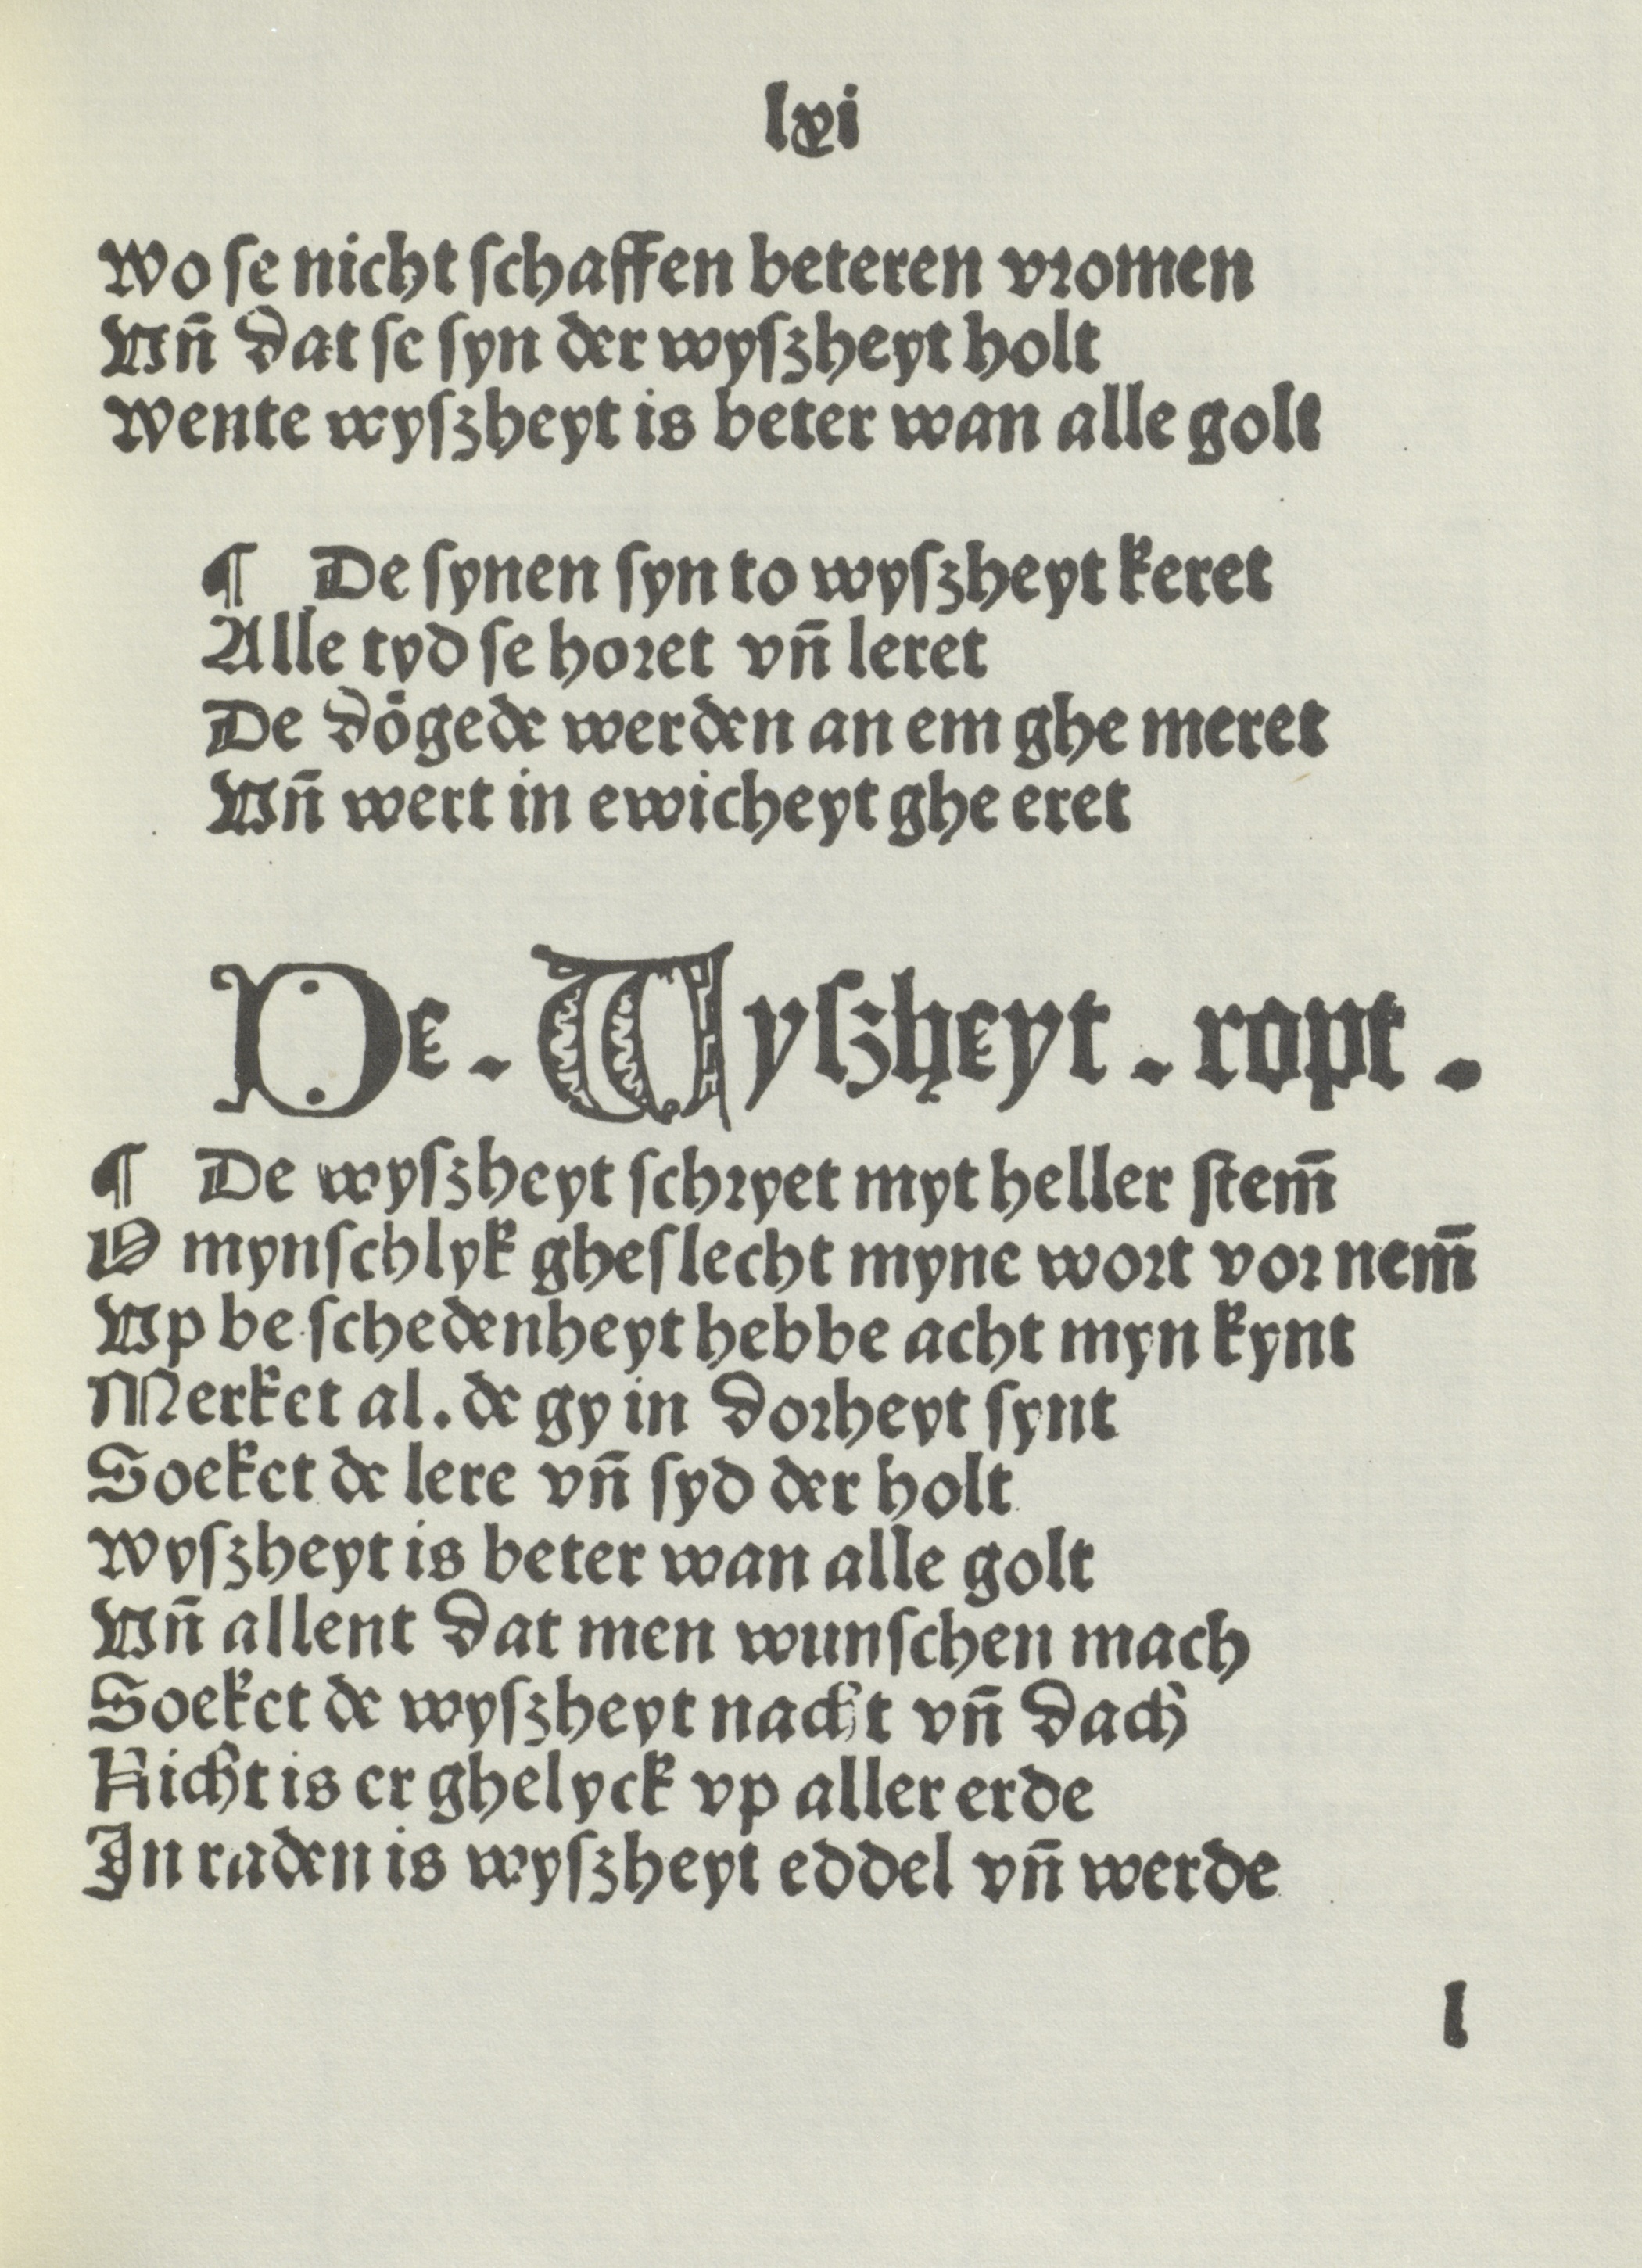 lxi
Wo ſe nicht ſchaffen beteren vꝛomen
Vn̄ dat ſe ſyn der wyſzheyt holt
Wente wyſzheyt is beter wan alle golt
¶ De ſynen ſyn to wyſzheyt keret
Alle tyd ſe hoꝛet vn̄ leret
De doͤgede werden an em ghe meret
Vn̄ wert in ewicheyt ghe eret
De. Wyſzheyt. ropt.
¶ De wyſzheyt ſchꝛyet myt heller ſtem̄
O mynſchlyk gheſlecht myne woꝛt voꝛ nem̄
Vp be ſchedenheyt hebbe acht myn kynt
Merket al. de gy in doꝛheyt ſynt
Soeket de lere vn̄ ſyd der holt
Wyſzheyt is beter wan alle golt
Vn̄ allent dat men wunſchen mach
Soeket de wyſzheyt nacht vn̄ dach
Nicht is er ghelyck vp aller erde
In raden is wyſzheyt eddel vn̄ werde
l